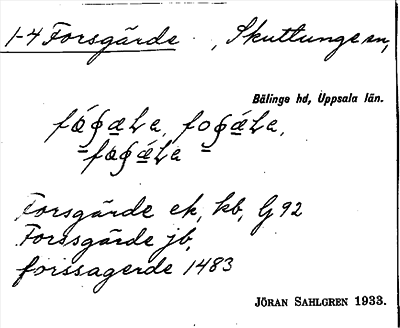 1-4 Forsgärde, Skuttunge sn,
Bälinge hd, Uppsala län.
Forsgärde ek, kb, G 92
Forssgärde jb,
forssagerde 1483
JÖRAN SAHLGREN 1933.